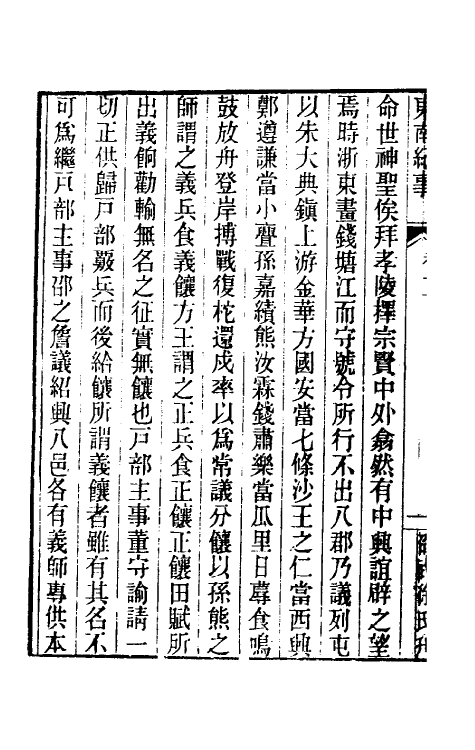 東南紀事
命世神聖俟拜孝陵擇宗賢中外翕然有中興誼辟之望
焉時浙東畫錢塘江而守號令所行不出八郡乃議列屯
以朱大典鎮上游金華方國安當七條沙王之仁當西興
鄭遵謙當小亹孫嘉績熊汝霖錢肅樂當瓜里日蓐食鳴
鼓放舟登岸搏戰復柁還戍率以為常議分饟以孫熊之
師謂之義兵食義饟方王謂之正兵食正饟正饟田賦所
出義餉勸輸無名之征實無饟也戸部主事董守諭請一
切正供歸戸部覈兵而後給饟所謂義饟者雖有其名不
可爲繼戸部主事邵之詹議紹興八邑各有義師專供本